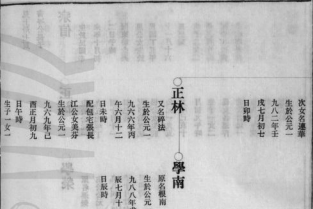 次女名連華
生於公元一
九八二年壬
戌七月初七
日卯時
○正林
又名碎法
生於公元一
九六六年丙
午六月十二
日未時
配包宅張長
江公女美芬
生於公元一
九六九年己
酉正月初九
日午時
生子一女一
○學南
原名根南
生於公元一
九八八年戊
辰七月十
日辰時